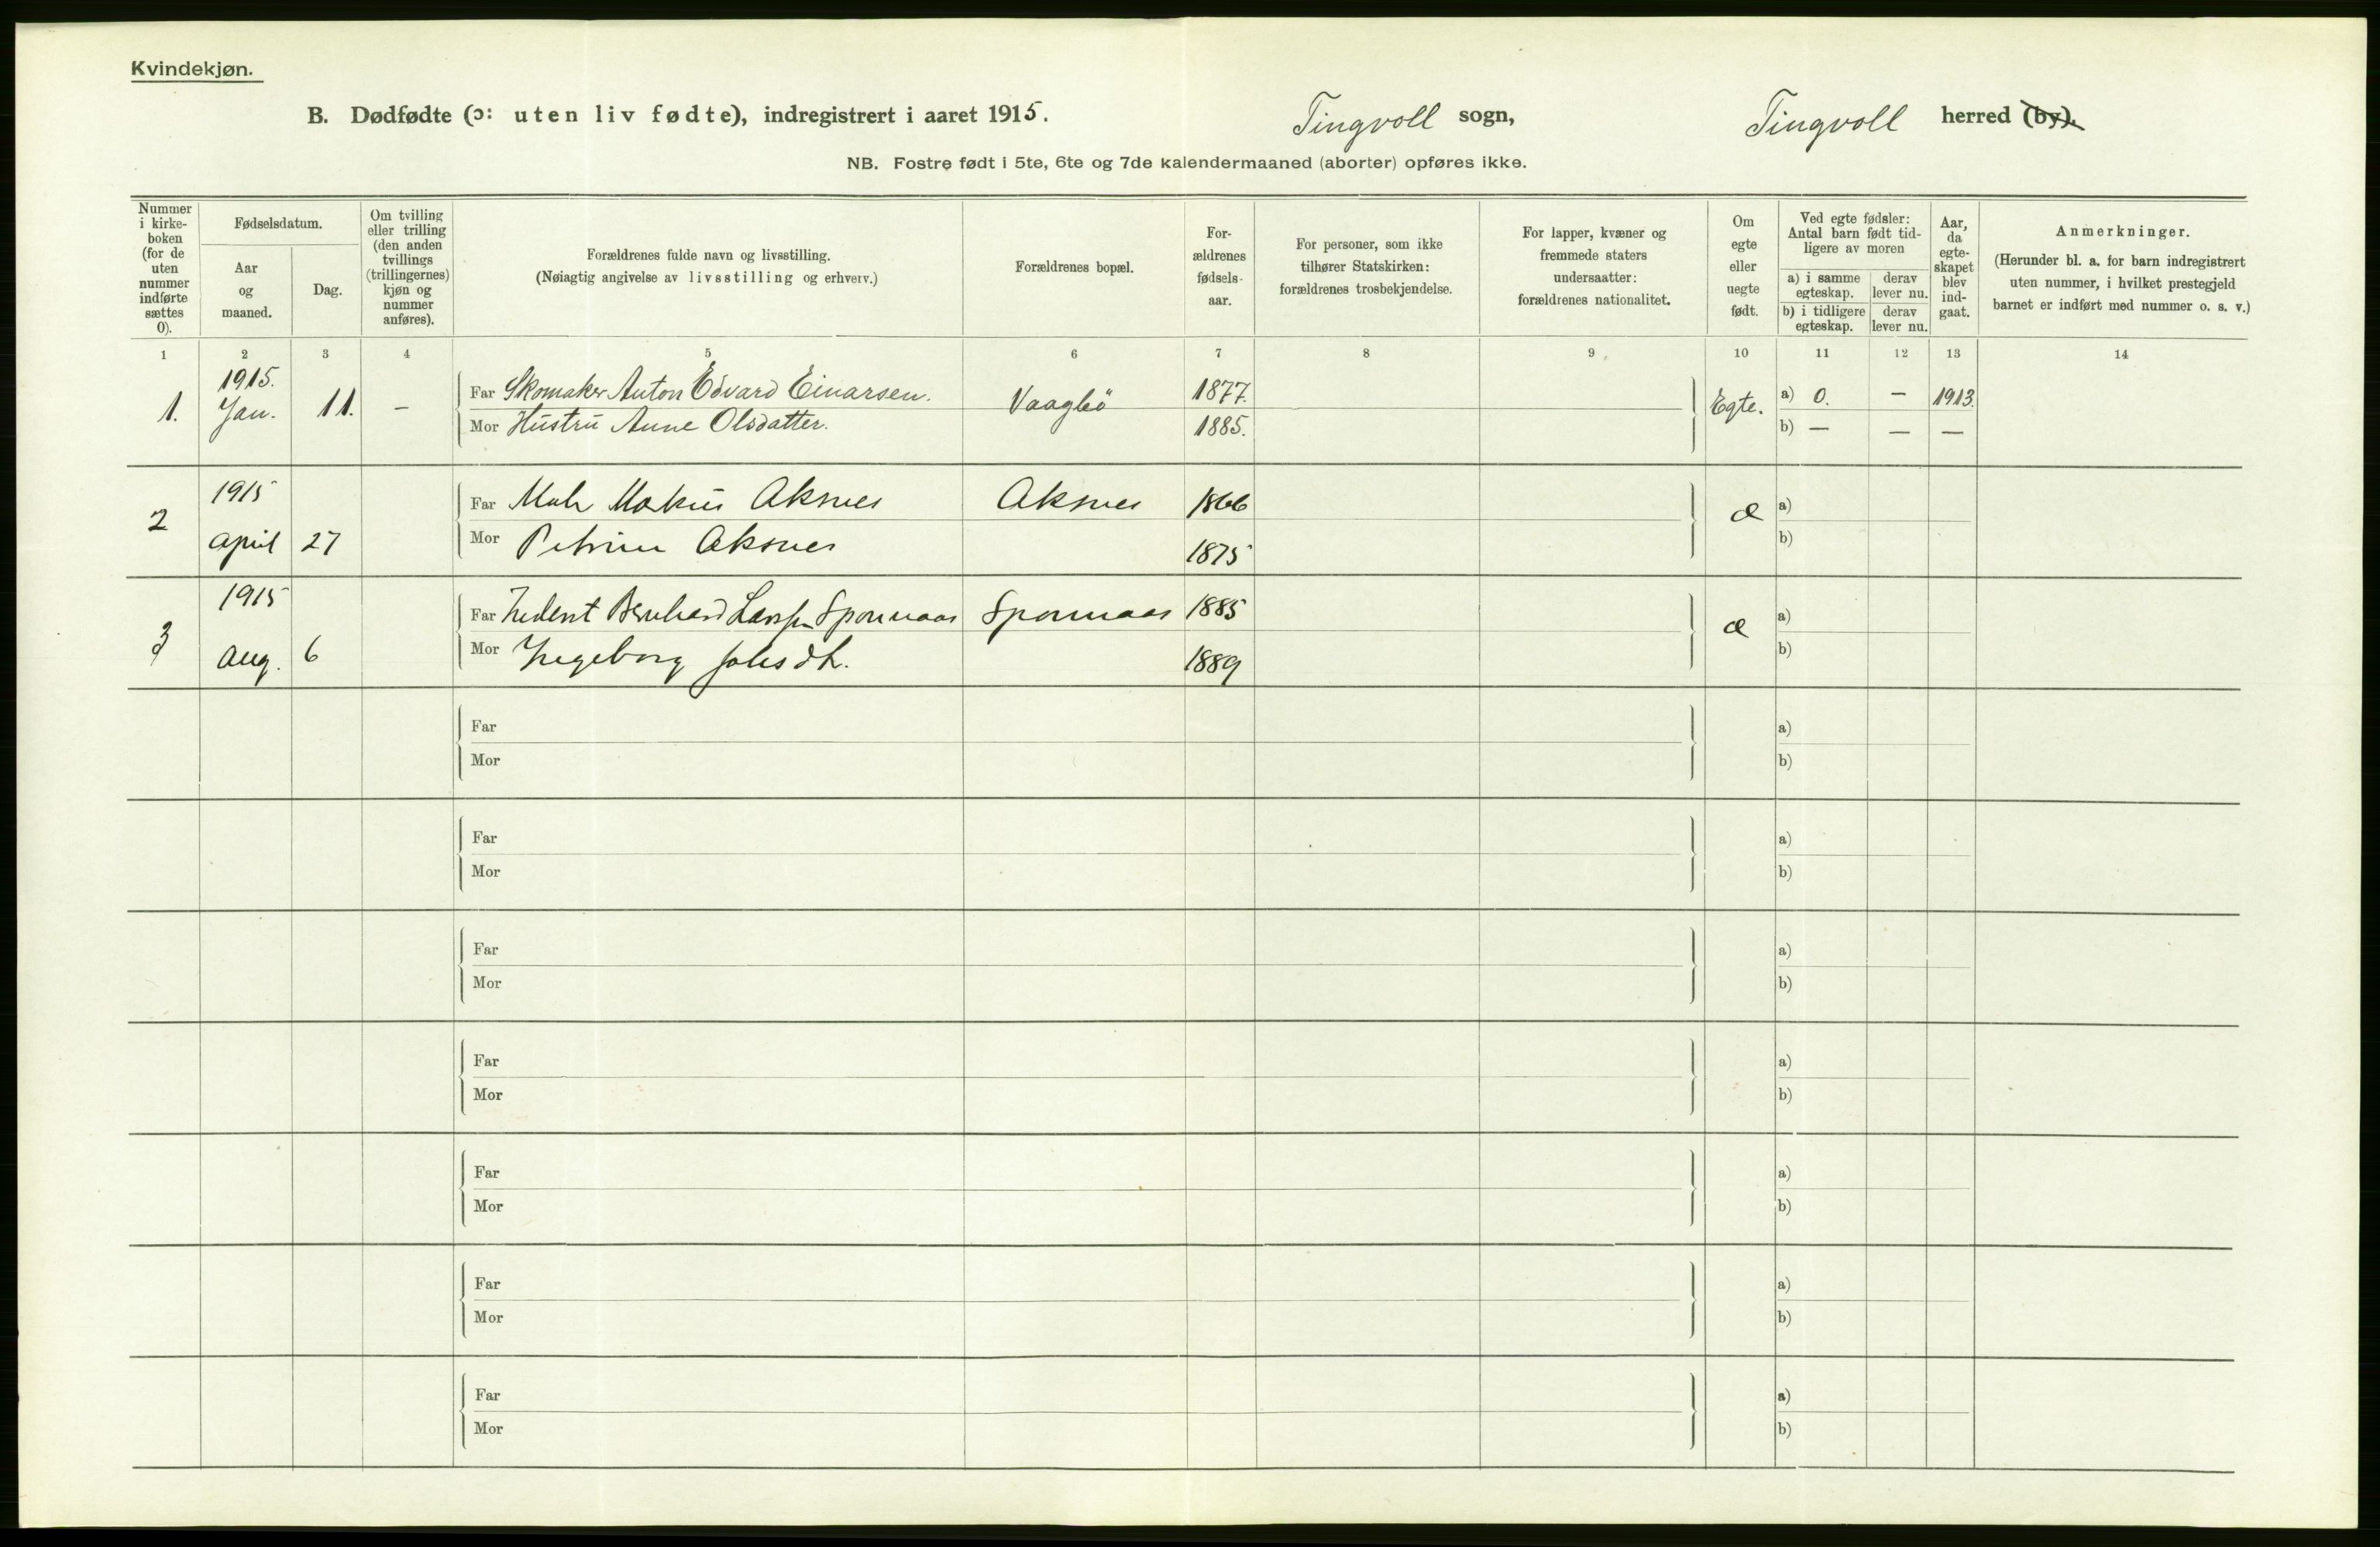 Kvindekjøn.
B. Dødfødte (ɔ: uten liv fødte), indregistrert i aaret 1915. Tingvoll sogn, Tingvoll herred (by).
NB. Fostre født i 5te, 6te og 7de kalendermaaned (aborter) opføres ikke.
Nummer i kirke- boken (for de uten nummer indførte sættes 0).
Fødselsdatum.
Aar og maaned.
Dag.
Om tvilling eller trilling (den anden tvillings (trillingernes) kjøn og nummer anføres).
Forældrenes fulde navn og livsstilling.
(Nøiagtig angivelse av livsstilling og erhverv.)
Forældrenes bopæl.
For- ældrenes fødsels- aar.
For personer, som ikke tilhører Statskirken: forældrenes trosbekjendelse.
For lapper, kvæner og fremmede staters undersaatter: forældrenes nationalitet.
Om egte eller uegte født.
Ved egte fødsler: Antal barn født tid- ligere av moren
a) i samme egteskap. derav lever nu.
b) i tidligere egteskap. derav lever nu.
Aar, da egte- skapet blev ind- gaat.
Anmerkninger.
(Herunder bl. a. for barn indregistrert uten nummer, i hvilket prestegjeld barnet er indført med nummer o. s. v.)
1 2 3 4 5 6 7 8 9 10 11 12 13 14
1. 1915. Jan. 11. – Far Skomaker Anton Edvard Einarsen. Vaagbö 1877. Egte. a) 0. – 1913.
Mor Hustru Anne Olsdatter. 1885. b) – – –
2 1915 april 27 Far Markus Aksnes Aksnes 1866 æ a)
Mor Petrine Aksnes 1875 b)
3 1915 Aug. 6 Far Bernhard Larssen 1885 æ a)
Mor Ingeborg 1889 b)
Far a)
Mor b)
Far a)
Mor b)
Far a)
Mor b)
Far a)
Mor b)
Far a)
Mor b)
Far a)
Mor b)
Far a)
Mor b)